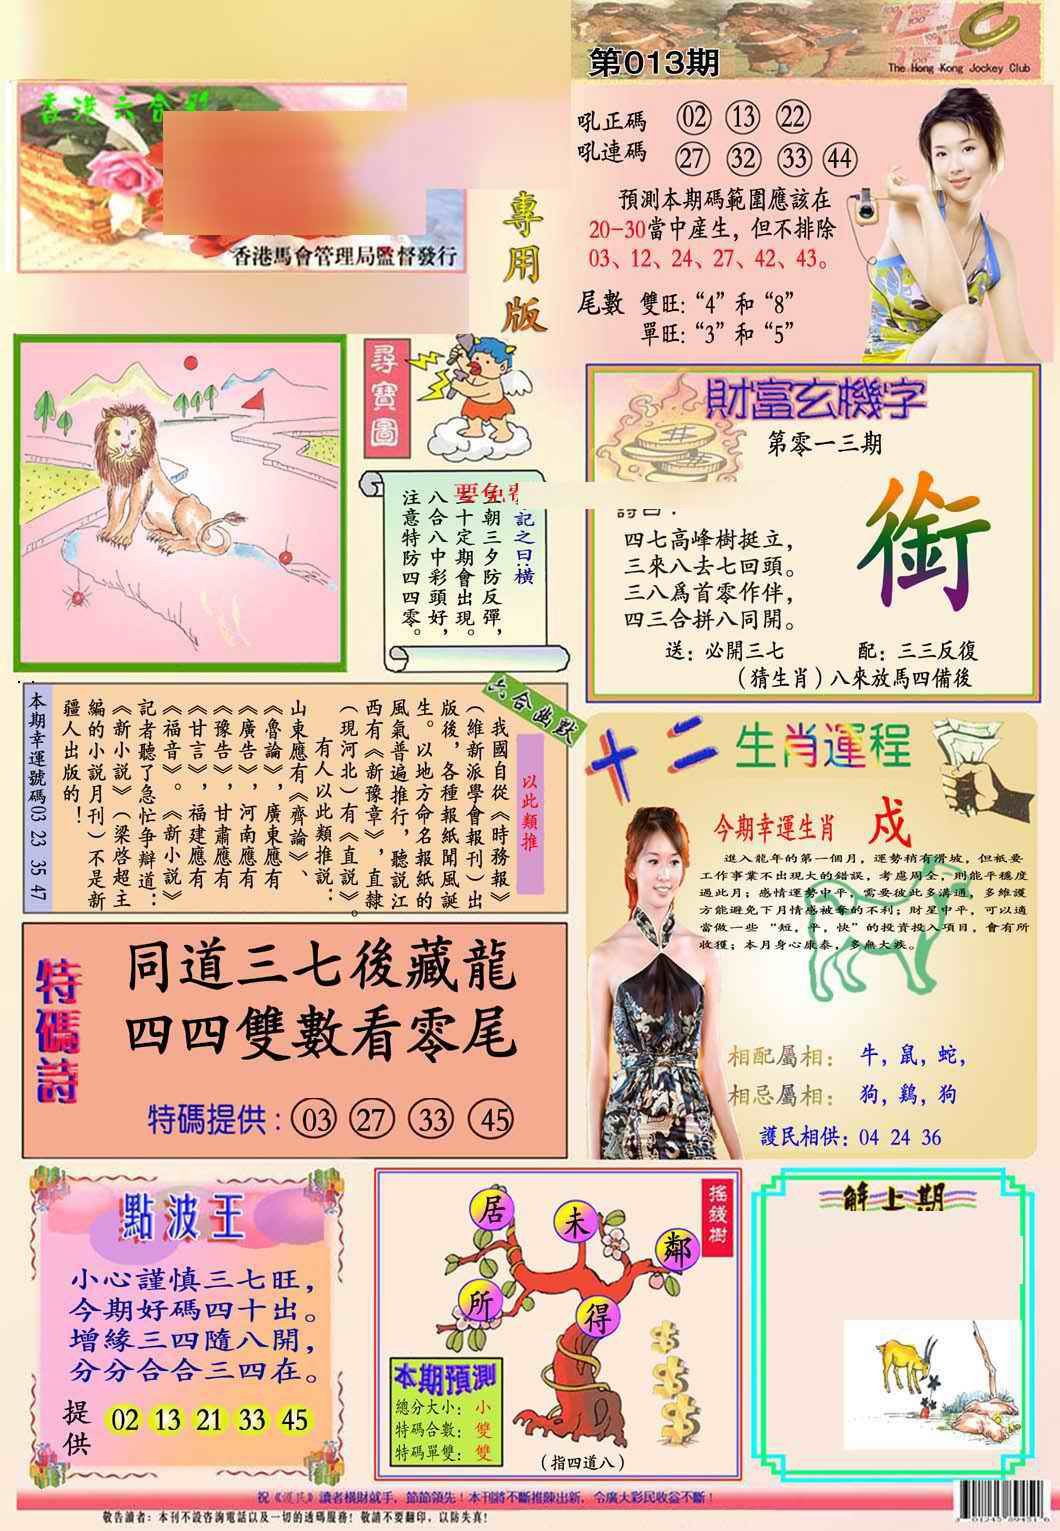 第013期
The Hong Kong Jockey Club
香港六合彩
香港馬會管理局監督發行
專用版
吼正碼 02 13 22
吼連碼 27 32 33 44
預測本期碼範圍應該在
20—30當中産生，但不排除
03、12、24、27、42、43。
尾數 雙旺：“4”和“8”
單旺：“3”和“5”
尋寶圖
記之曰：橫
三朝三夕防反彈，
三十定期會出現。
八合八中彩頭好，
注意特防四四零。
財富玄機字
第零一三期
詩曰：
四七高峰樹挺立，
三來八去七回頭。
三八爲首零作伴，
四三合拼八同開。
銜
送：必開三七
配：三三反復
（猜生肖）八來放馬四備後
六合幽默
以此類推
我國自從《時務報》
（維新派學會報刊）出
版後，各種報紙聞風誕
生。以地方命名報紙的
風氣普遍推行，聽説江
西有《新豫章》，直隸
（現河北）有《直説》。
有人以此類推説：
山東應有《齊論》、
《魯論》，廣東應有
《廣告》，河南應有
《豫告》，甘肅應有
《甘言》，福建應有
《福音》。《新小説》
記者聽了急忙争辯道：
《新小説》（梁啓超主
編的小説月刊）不是新
疆人出版的！
本期幸運號碼03 23 35 47
十二生肖運程
今期幸運生肖 戍
進入龍年的第一個月，運勢稍有滑坡，但衹要
工作事業不出現大的錯誤，考慮周全，則能平穩度
過此月；感情運勢中平，需要彼此多溝通，多維護
方能避免下月情感被奪的不利；財星中平，可以適
當做一些“短，平，快”的投資投入項目，會有所
收獲；本月身心康泰，多無大疾。
相配屬相：牛，鼠，蛇，
相忌屬相：狗，鷄，狗
護民相供：04 24 36
特碼詩
同道三七後藏龍
四四雙數看零尾
特碼提供：03 27 33 45
點波王
小心謹慎三七旺，
今期好碼四十出。
增緣三四隨八開，
分分合合三四在。
提供 02 13 21 33 45
搖錢樹
居
未
鄰
所
得
本期預測
總分大小：小
特碼合數：雙
特碼單雙：雙
（指四道八）
解上期
祝《護民》讀者橫財就手，節節領先！本刊將不斷推陳出新，令廣大彩民收益不斷！
敬告讀者：本刊不設咨詢電話以及一切的透碼服務！敬請不要翻印，以防失真！